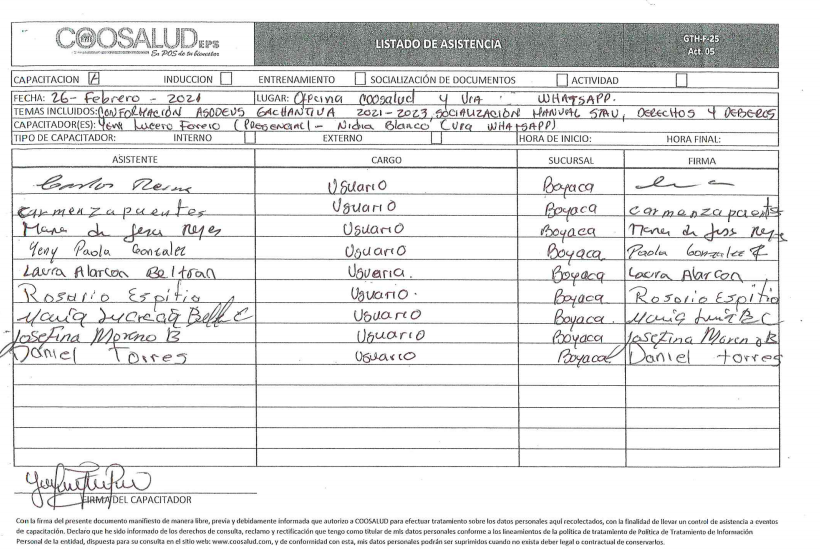 COOSALUD EPS
En POS de tu bienestar
LISTADO DE ASISTENCIA
GTH-F-25
Act. 05
CAPACITACION INDUCCION ENTRENAMIENTO SOCIALIZACIÓN DE DOCUMENTOS ACTIVIDAD
FECHA: 26- Febrero - 2021 LUGAR: Oficina coosalud y Via WHATSAPP.
TEMAS INCLUIDOS: CONFORMACIÓN ASODEUS GACHANTIVA 2021-2023, SOCIALIZACIÓN MANUAL SIAU, DERECHOS Y DEBERES
CAPACITADOR(ES): Yeny Lucero Forero (Presencial - Nidia Blanco (VIA WHATSAPP)
TIPO DE CAPACITADOR: INTERNO EXTERNO HORA DE INICIO: HORA FINAL:
ASISTENTE CARGO SUCURSAL FIRMA
Carlos Usuario Boyaca
carmenza puentes Usuario Boyaca carmenza puentes
Maria de Jesus Reyes Usuario Boyaca Maria de Jesus Reyes
Yeny Paola Gonzalez Usuario Boyaca Paola Gonzalez
Laura Alarcon Beltran Usuaria. Boyaca Laura Alarcon
Rosario Espitia Usuario. Boyaca Rosario Espitia
Maria Lucrecia Bell C Usuario Boyaca. Maria B C
Josefina Moreno B Usuario Boyaca Josefina Moreno B
Daniel Torres Usuario Boyaca Daniel torres
FIRMA DEL CAPACITADOR
Con la firma del presente documento manifiesto de manera libre, previa y debidamente informada que autorizo a COOSALUD para efectuar tratamiento sobre los datos personales aquí recolectados, con la finalidad de llevar un control de asistencia a eventos
de capacitación. Declaro que he sido informado de los derechos de consulta, reclamo y rectificación que tengo como titular de mis datos personales conforme a los lineamientos de la política de tratamiento de Política de Tratamiento de Información
Personal de la entidad, dispuesta para su consulta en el sitio web: www.coosalud.com, y de conformidad con esta, mis datos personales podrán ser suprimidos cuando no exista deber legal o contractual de conservarlos.